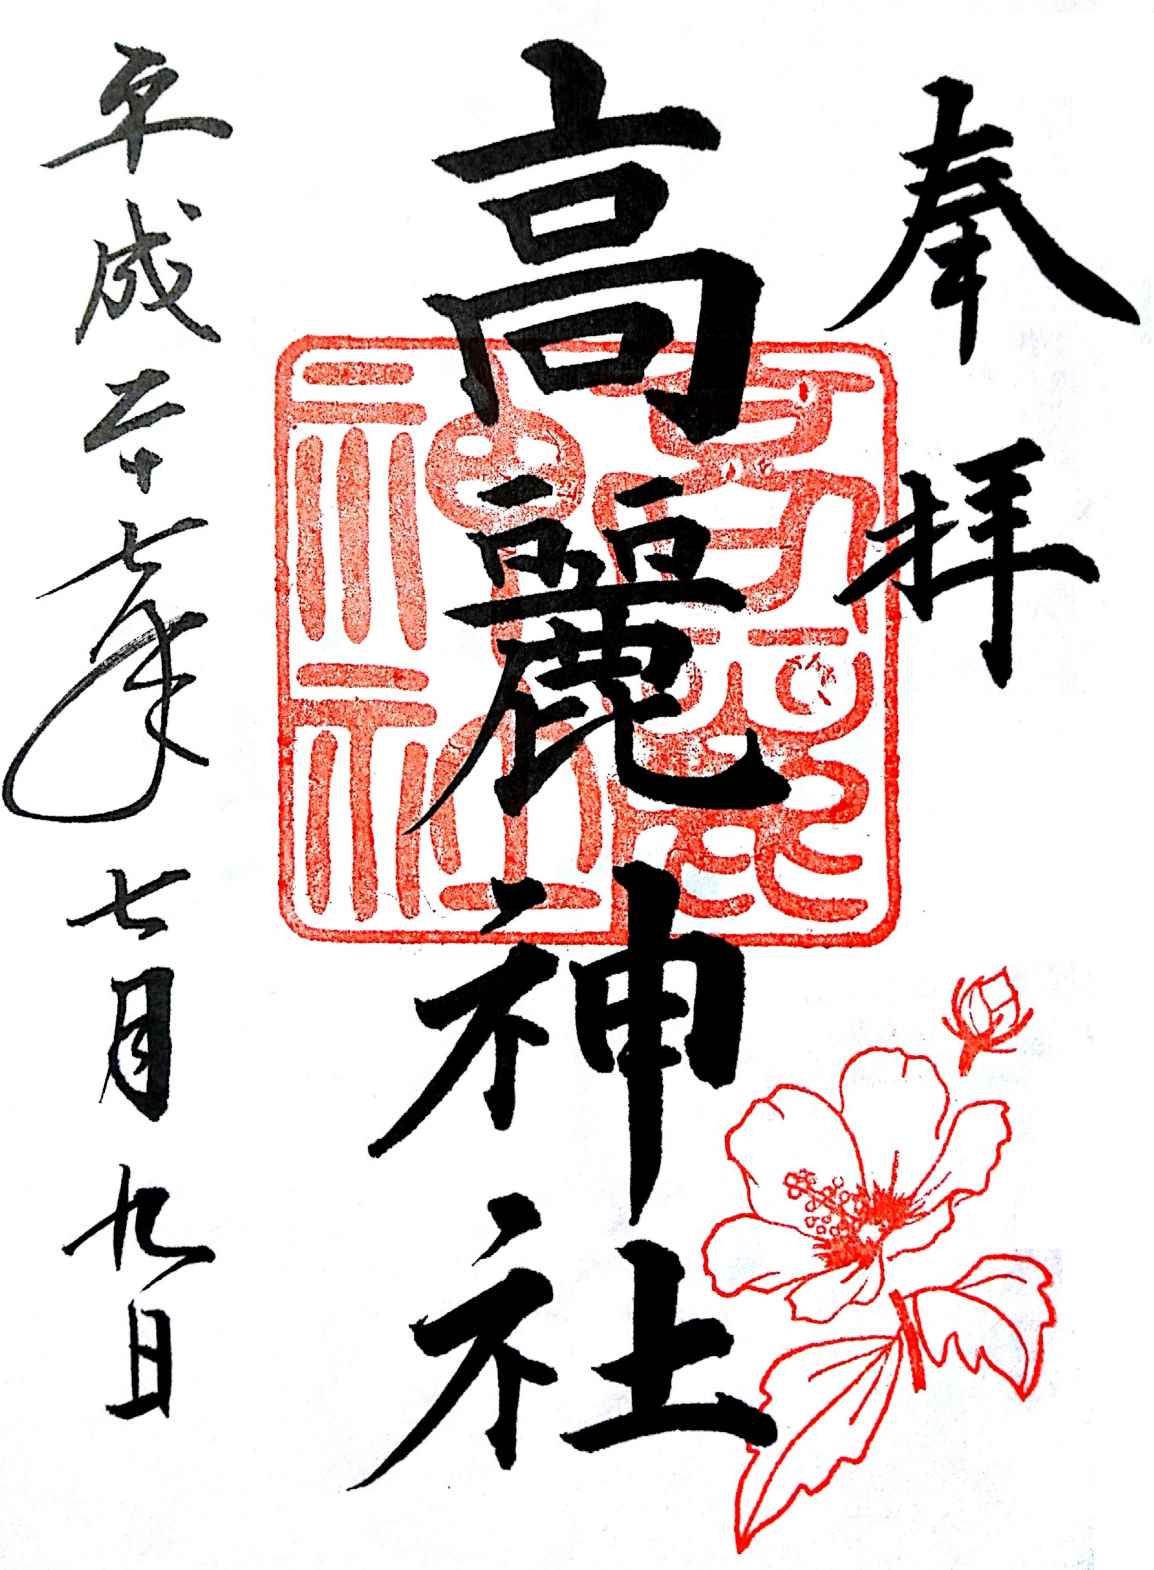 奉拝
高麗神社
平成二十七年七月九日
高麗神社